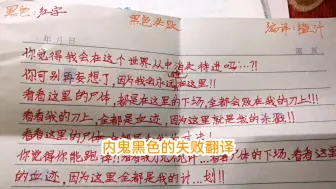 黑色：红字 黑色失败 编译：橙汁
年 月 日
你觉得我会在这个世界从中消失待进吗…?!
你可别再妄想了，因为我会永远在这里!!
看看这里的尸体，都是在这里的下场，全都会败在我的刀上!!!
看看我的刀上，全都是血迹，因为这里就是我的杀戮!!
你觉得你能跑得
尸体的下场、看看这里
的血迹，因为这里全都是我的计…划!!
内鬼黑色的失败翻译